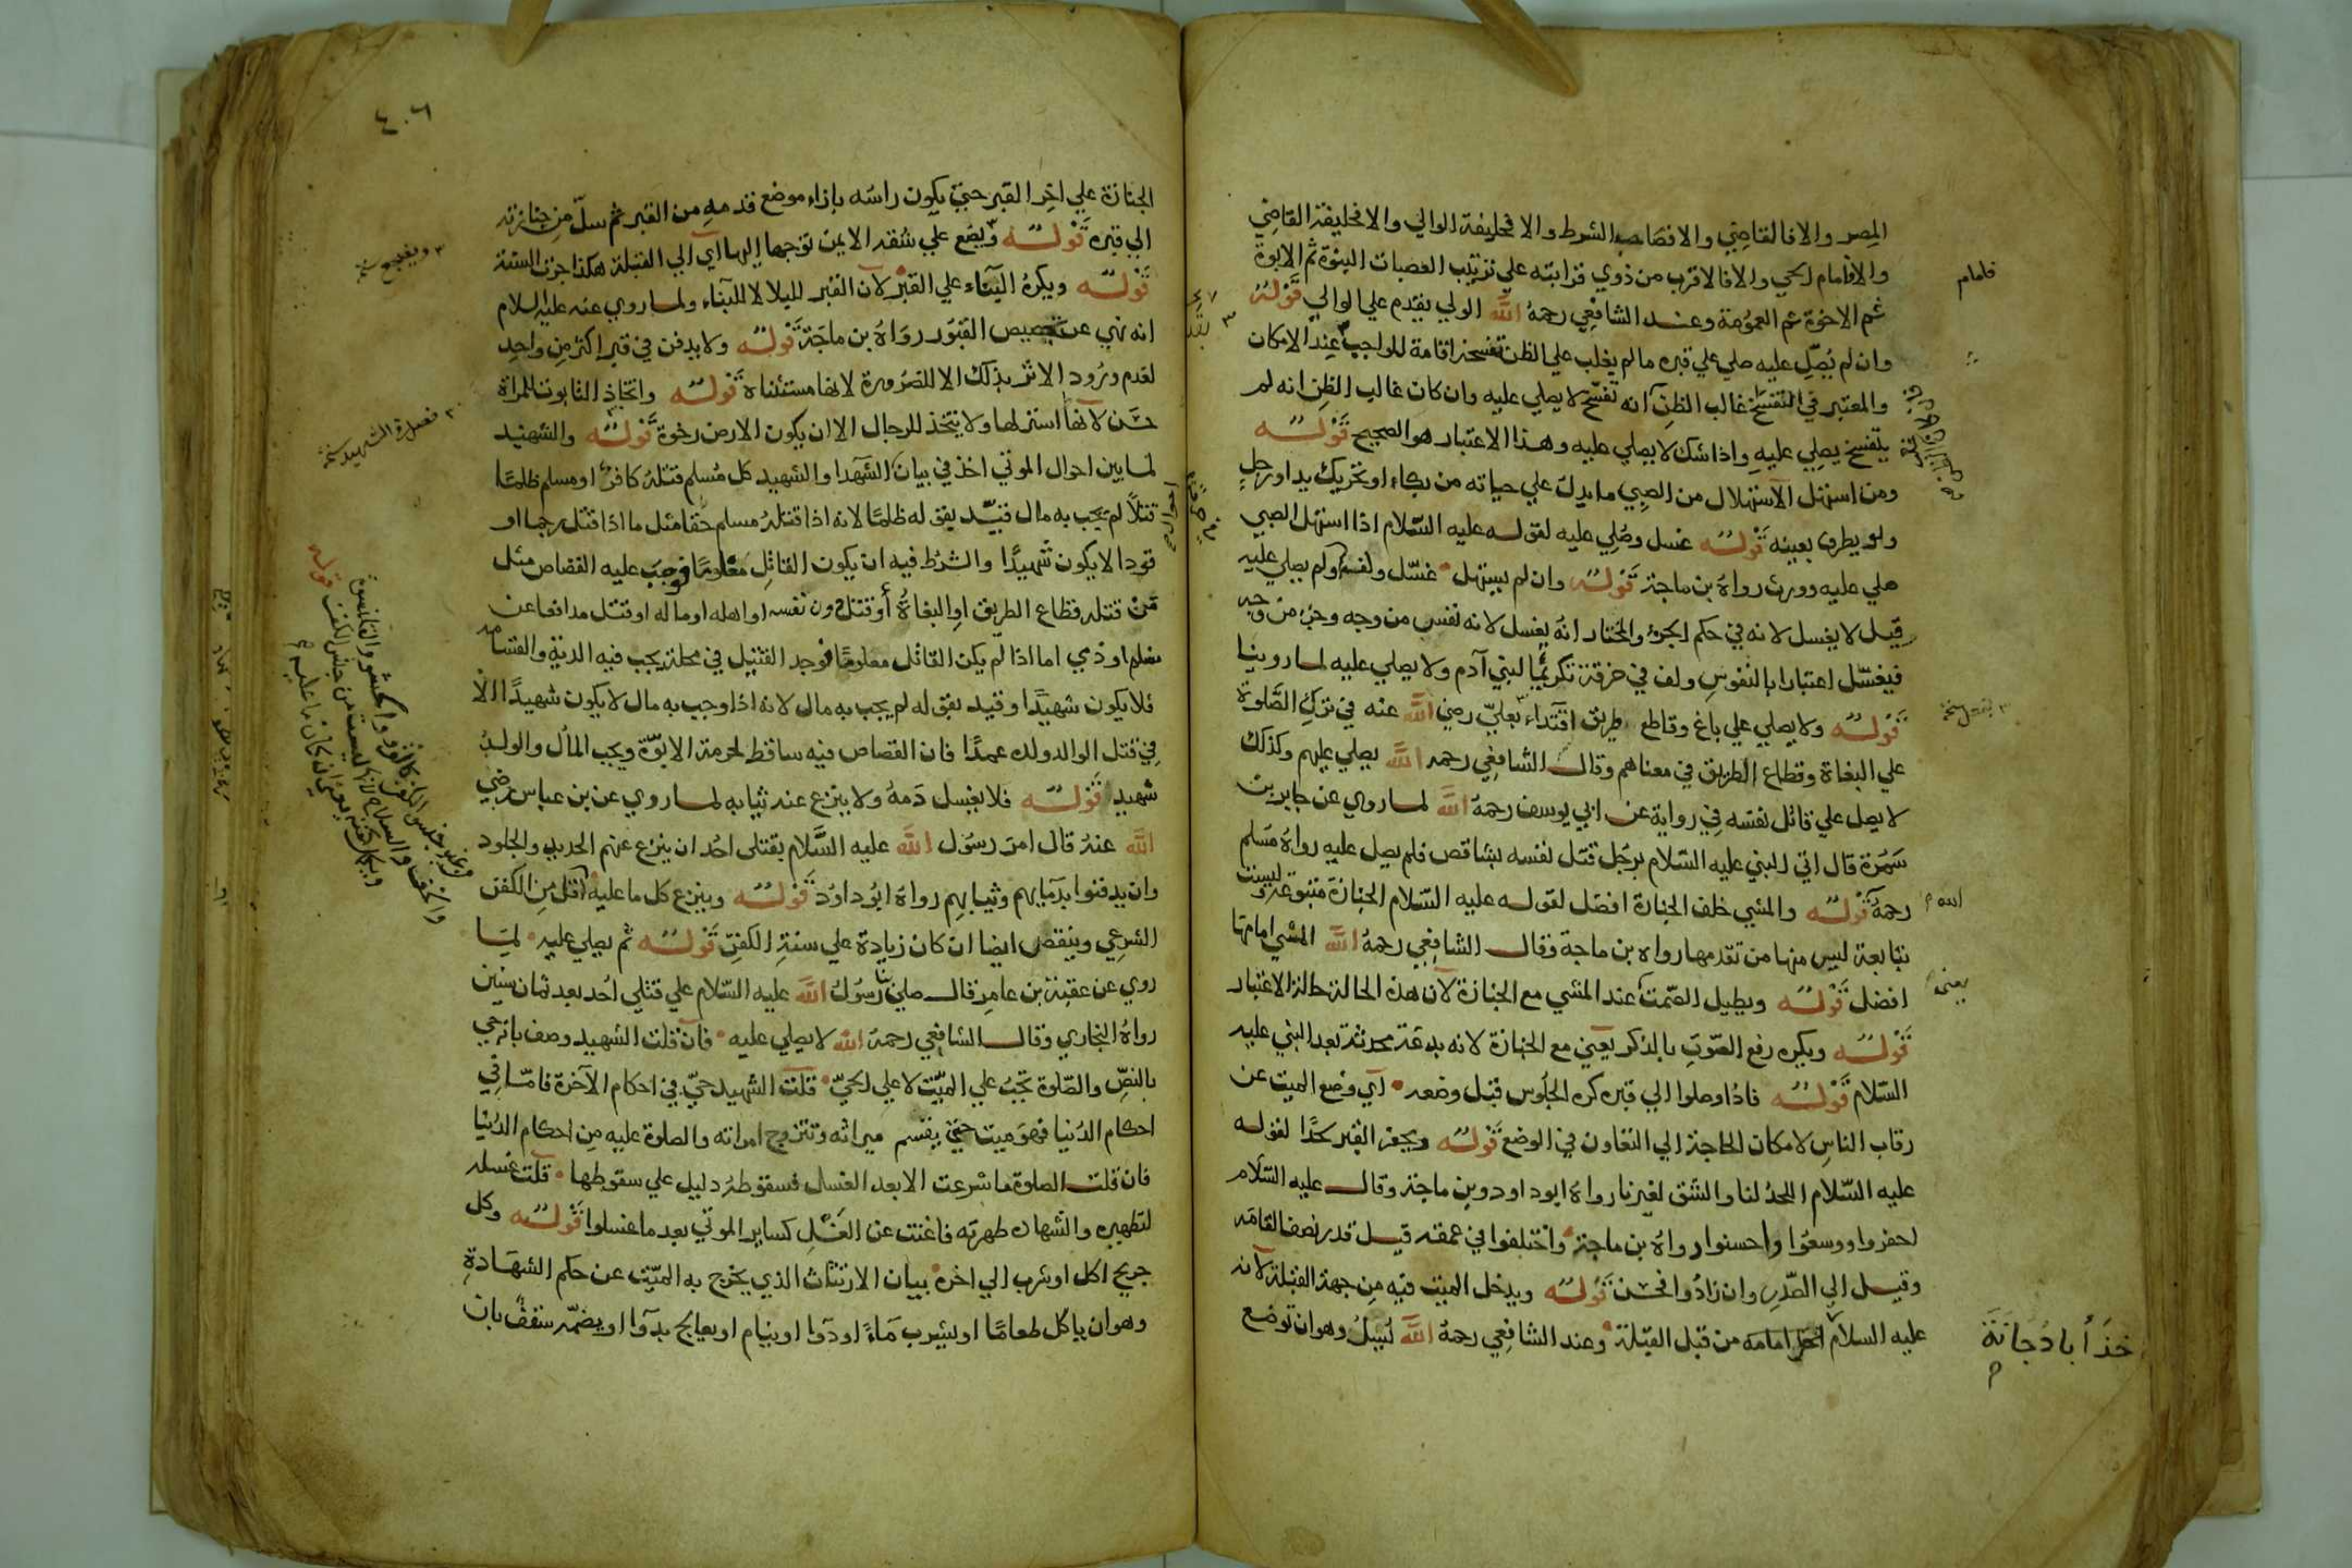 المصر والا فالقاضي والا فصاحب الشرط والا فخليفة الوالي والا فخليفة القاضي
والا فامام الحي والا فالاقرب من ذوي قرابته علي ترتيب العصبات البنوة ثم الابوة
ثم الاخوة ثم العمومة وعند الشافعي رحمه الله الولي يقدم علي الوالي قوله
وان لم يصل عليه صلي علي قبره ما لم يغلب علي الظن تفسخه اقامة للواجب عند الامكان
والمعتبر في التفسخ غالب الظن انه تفسخ لا يصلي عليه وان كان غالب الظن انه لم
يتفسخ يصلي عليه واذا شك لا يصلي عليه وهذا الاعتبار هو الصحيح قوله
ومن استهل الاستهلال من الصبي ما يدل علي حياته من بكاء او تحريك يد او رجل
ولو يطرف بعينه قوله غسل وصلي عليه لقوله عليه السلام اذا استهل الصبي
صلي عليه وورث رواه بن ماجة قوله وان لم يستهل غسل ولف ولم يصلي عليه
قيل لا يغسل لانه في حكم الجزء والمختار انه يغسل لانه نفس من وجه وجزء من وجه
فيغسل اعتبارا بالنفوس ولف في خرقة تكريما لبني آدم ولا يصلي عليه لما روينا
قوله ولا يصلي علي باغ وقاطع طريق اقتداء بعلي رضي الله عنه في ترك الصلوة
علي البغاة وقطاع الطريق في معناهم وقال الشافعي رحمه الله يصلي عليهم وكذلك
لا يصل علي قاتل نفسه في رواية عن ابي يوسف رحمه الله لما روي عن جابر بن
سمرة قال اتي النبي عليه السلام برجل قتل نفسه بمشاقص فلم يصل عليه رواه مسلم
رحمه قوله والمشي خلف الجنازة افضل لقوله عليه السلام الجنازة متبوعة وليست
بتابعة ليس منها من تقدمها رواه بن ماجة وقال الشافعي رحمه الله المشي امامها
افضل قوله ويطيل الصمت عند المشي مع الجنازة لان هذه الحالة حالة الاعتبار
قوله ويكره رفع الصوت بالذكر يعني مع الجنازة لانه بدعة محدثة بعد النبي عليه
السلام قوله فاذا وصلوا الي قبره كره الجلوس قبل وضعه اي وضع الميت عن
رقاب الناس لامكان الحاجة الي التعاون في الوضع قوله ويحفر القبر لحدا لقوله
عليه السلام اللحد لنا والشق لغيرنا رواه ابو داود وبن ماجة وقال عليه السلام
احفروا ووسعوا واحسنوا رواه بن ماجة واختلفوا في عمقه قيل قدر نصف القامة
وقيل الي الصدر وان زادوا فحسن قوله ويدخل الميت فيه من جهة القبلة لانه
عليه السلام امامه من قبل القبلة وعند الشافعي رحمه الله يسل وهو ان توضع
فامام
الله
يعني
خذ أبا دجانة
٤٠٦
الجنازة علي اخر القبر حتي يكون راسه بازاء موضع قدمه من القبر ثم سل من جنازته
الي قبره قوله ويضع علي شقه الايمن توجها اليها اي الي القبلة هكذا جرت السنة
قوله ويكره البناء علي القبر لان القبر للبلا لا للبناء ولما روي عنه عليه السلام
انه نهي عن تجصيص القبور رواه بن ماجة قوله ولا يدفن في قبر اكثر من واحد
لعدم ورود الاثر بذلك الا للضرورة لانها مستثناة قوله واتخاذ التابوت للمراة
حسن لانها استر لها ولا يتخذ للرجال الا ان يكون الارض رخوة قوله والشهيد
لما بين احوال الموتي اخذ في بيان الشهدا والشهيد كل مسلم قتله كافر او مسلم ظلما
قتلا لم يجب به مال قيد بقوله ظلما لانه اذا قتله مسلم حقا مثل ما اذا قتل رجما او
قودا لا يكون شهيدا والشرط فيه ان يكون القاتل معلوما فوجب عليه القصاص مثل
من قتله قطاع الطريق او البغاة أو قتل دون نفسه او اهله او ماله او قتل مدافعا عن
مسلم او ذمي اما اذا لم يكن القاتل معلوما فوجد القتيل في محلة يجب فيه الدية والقسامة
فلا يكون شهيدا وقيد بقوله لم يجب به مال لانه اذا وجب به مال لا يكون شهيدا الا
في قتل الوالد ولده عمدا فان القصاص فيه ساقط لحرمة الابوة ويجب المال والولد
شهيد قوله فلا يغسل دمه ولا ينزع عنه ثيابه لما روي عن بن عباس رضي
الله عنه قال امر رسول الله عليه السلام بقتلى احد ان ينزع عنهم الحديد والجلود
وان يدفنوا بدمايهم وثيابهم رواه ابو داود قوله وينزع كل ما عليه اقل من الكفن
الشرعي وينقص ايضا ان كان زيادة علي سنة الكفن قوله ثم يصلي عليه لما
روي عن عقبة بن عامر قال صلي بنا رسول الله عليه السلام علي قتلي احد بعد ثمان سنين
رواه البخاري وقال الشافعي رحمه الله لا يصلي عليه فان قلت الشهيد وصف بانه حي
بالنص والصلوة تجب علي الميت لا علي الحي قلت الشهيد حي في احكام الآخرة فاما في
احكام الدنيا فهو ميت حتي يقسم ميراثه وتتزوج امراته والصلوة عليه من احكام الدنيا
فان قلت الصلوة ما شرعت الا بعد الغسل فسقوطه دليل علي سقوطها قلت غسله
لتطهيره والشهادة طهرته فاغنت عن الغسل كساير الموتي بعد ما غسلوا قوله وكل
جريح اكل او شرب الي اخره بيان الارتثاث الذي يخرج به الميت عن حكم الشهادة
وهو ان ياكل طعاما او يشرب ماء او دوا او ينام او يعالج بدوا او يضمه سقف بان